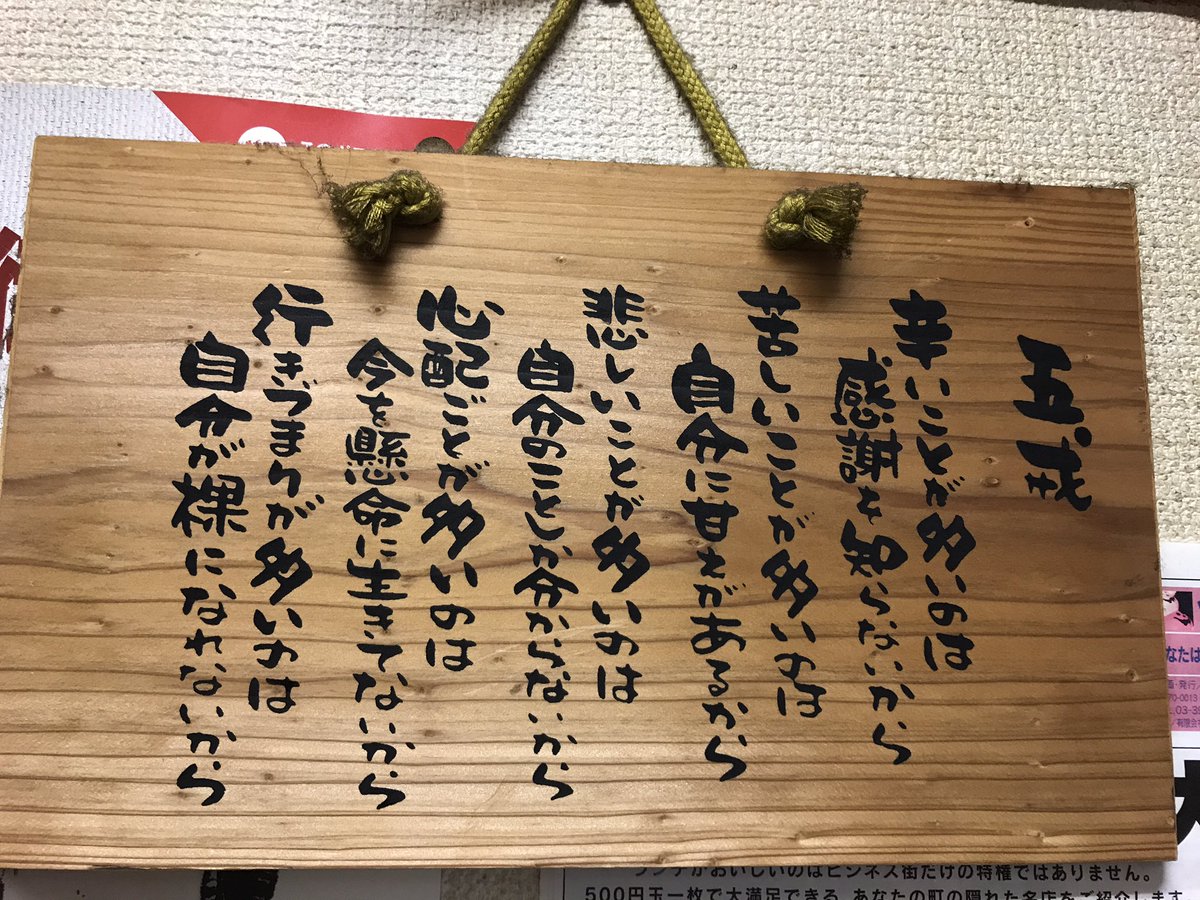 五戒
辛いことが多いのは
感謝を知らないから
苦しいことが多いのは
自分に甘えがあるから
悲しいことが多いのは
自分のことしか分からないから
心配ごとが多いのは
今を懸命に生きてないから
行きづまりが多いのは
自分が裸になれないから
ランチがおいしいのはビジネス街だけの特権ではありません。
500円玉一枚で大満足できる、あなたの町の隠れた名店をご紹介します